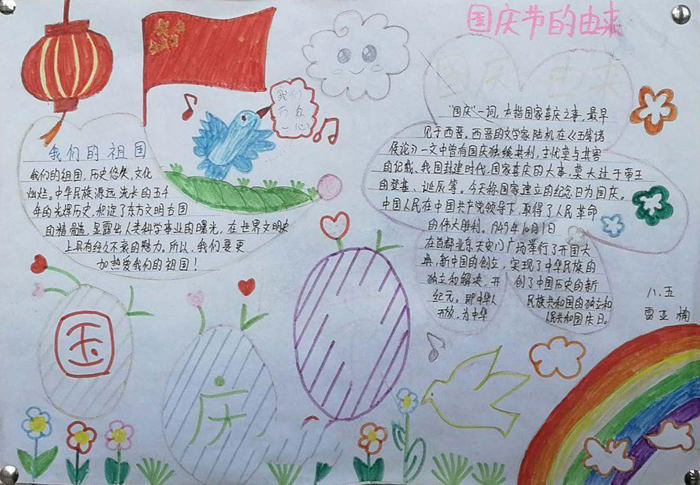 国庆节的由来
我们
万众
一心
我们的祖国
我们的祖国，历史悠久，文化
灿烂。中华民族源远流长的五千
年的光辉历史，创造了东方文明古国
的精髓，呈露出人类科学事业的曙光，在世界文明史
上具有经久不衰的魅力。所以，我们要更
加热爱我们的祖国！
国庆由来
"国庆"一词，本指国家喜庆之事，最早
见于西晋。西晋的文学家陆机在《五等诸
侯论》一文中曾有国庆独飨其利，主忧莫与其害
的记载。我国封建时代，国家喜庆的大事，莫大过于帝王
的登基、诞辰等。今天称国家建立的纪念日为国庆。
中国人民在中国共产党领导下，取得了人民革命
的伟大胜利。1949年10月1日
在首都北京天安门广场举行了开国大
典，新中国的创立，实现了中华民族的
独立和解放，开创了中国历史的新
纪元。即中华人民族共和国的独立和
开放，为中华
国庆日。
八.五
国
庆